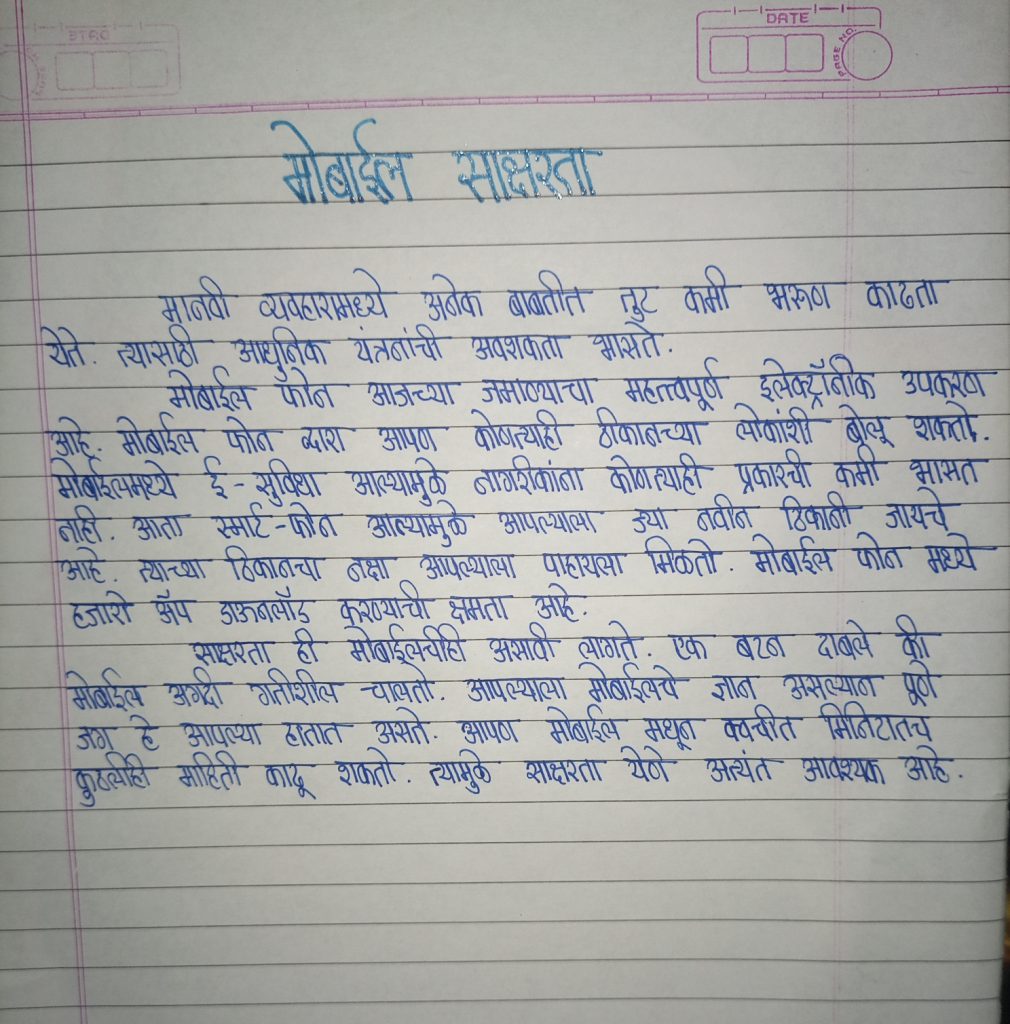 DATE
PAGE NO.
मोबाईल साक्षरता
मानवी व्यवहारामध्ये अनेक बाबतीत तुट कमी भरुण काढता
येते. त्यासाठी आधुनिक यंत्रनांची अवशकता भासते.
मोबाईल फोन आजच्या जमाण्याचा महत्त्वपूर्ण इलेक्ट्रॉनीक उपकरण
आहे. मोबाईल फोन द्वारा आपण कोणत्याही ठीकानच्या लोकांशी बोलू शकतो.
मोबाईलमध्ये ई-सुविधा आल्यामुळे नागरीकांना कोणत्याही प्रकारची कमी भासत
नाही. आता स्मार्ट-फोन आल्यामुळे आपल्याला ज्या नवीन ठिकानी जायचे
आहे. त्याच्या ठिकानचा नक्षा आपल्याला पाहायला मिळतो. मोबाईल फोन मध्ये
हजारो अ‍ॅप डाऊनलॉड करण्याची क्षमता आहे.
साक्षरता ही मोबाईलचीही असावी लागते. एक बटन दाबले की
मोबाईल अगदी गतीशील चालतो. आपल्याला मोबाईलचे ज्ञान असल्यान पूर्ण
जग हे आपल्या हातात असते. आपण मोबाईल मधून क्वचीत मिनिटातच
कुठलीही माहिती काढू शकतो. त्यामुळे साक्षरता येणे अत्यंत आवश्यक आहे.